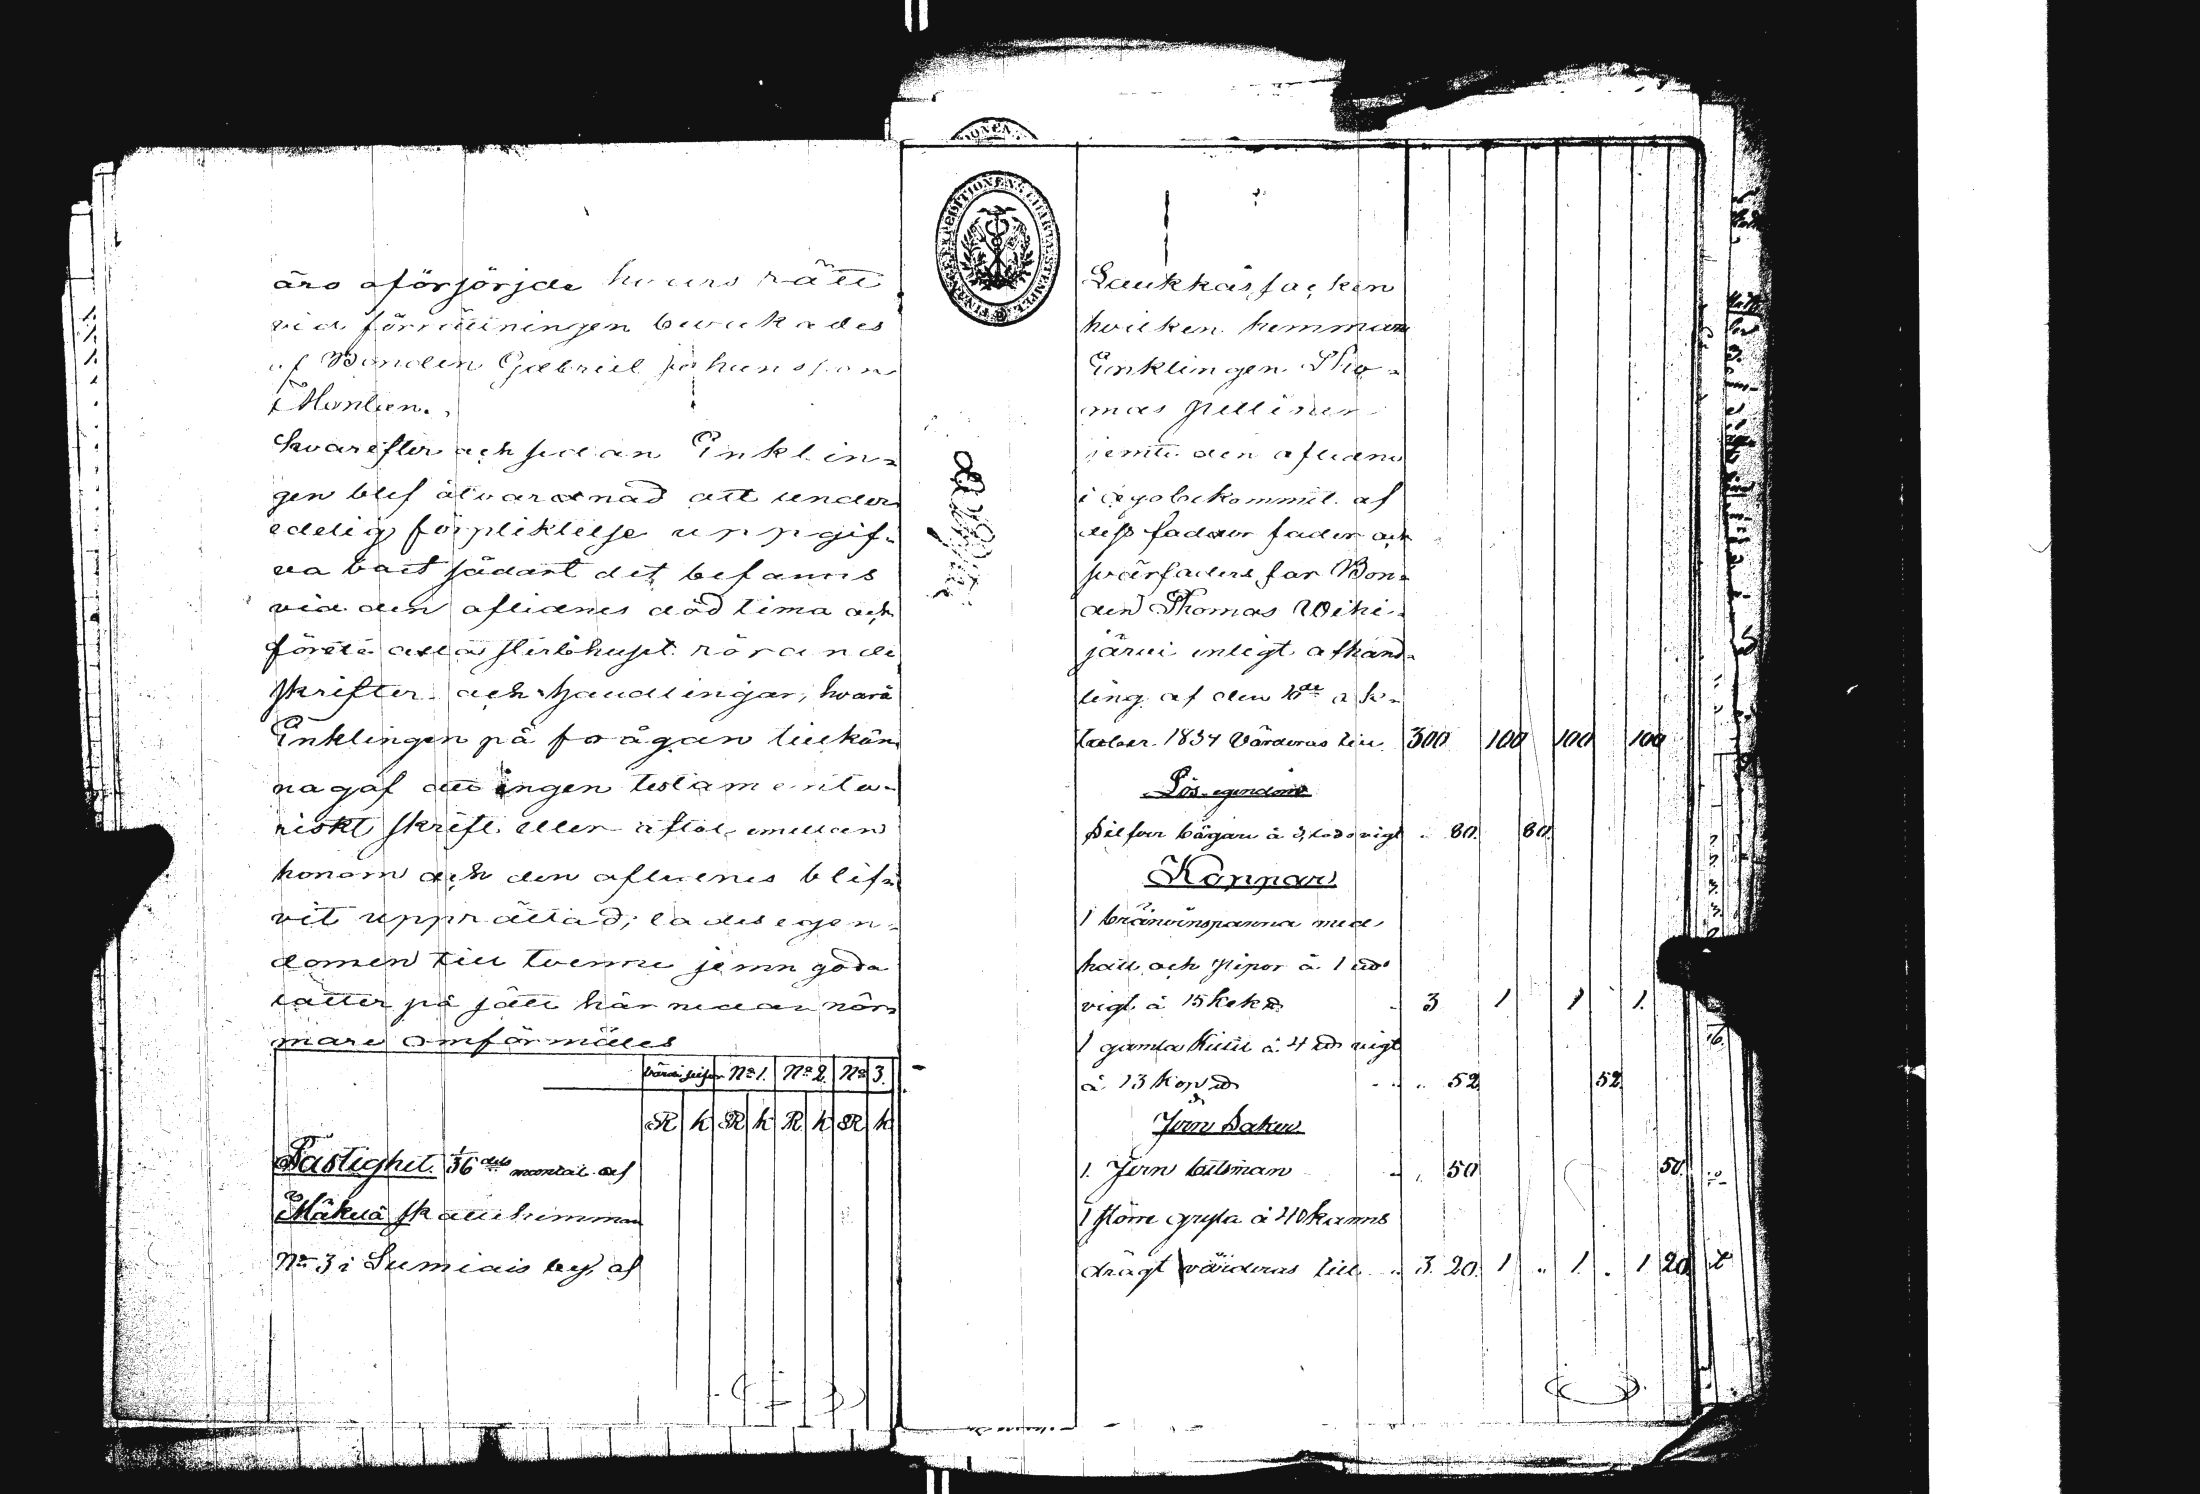 äro oförsörjde hvars rätt
vid förrättningen bevakades
af Bonden Gabriel Johansson
Manlan.
hvarefter och sedan Enklin=
gen blef åtvarnad att under
edelig förpliktelse uppgif=
va boet sådant det befanns
vid den aflidnes död tima och
förete alla sterbhuset rörande
skrifter och handlingar, hvarå
Enklingen på frågan tillkän
nagaf att ingen testamenta=
riskt skrift eller aftal emellan
honom och den aflidnes blif=
vit upprättad; lades egen=
domen till tvenne jemn goda
lätter på sätt här nedan när
mare omförmäles
Värdi silfver No 1. No 2. No 3.
R k R k R k R k
Fastighet. 1/36 dels mantal af
Mäkilä skattehemman
No 3 i Sumiais by, af
FINANCE EXPEDITIONENS CHARTÆ STEMPEL
hvilken hemman
Enklingen Tho=
mas Pellinen
jemte den aflidne
i ego bekommit af
dess fader och
svärfaders far Bon=
den Thomas Wihi=
järvi enligt afhand=
ling af den 10de ok=
tober 1834 Värderas till 300 100 100 100
Lös egendom
Silfver bägare à 3 lods vigt " 80. 80.
Koppar
1 bränvinspanna med
hatt och pipor à 1 ℔
vigt à 15 kop ℔ " 3 1 1 1.
1 gamla kittel à 4 ℔ vigt
à 13 kop ℔ " " 52 52.
Jern Saker
1. Jern betsman " " 50 50.
1 större gryta à 40 kanns
drägt värderas till " 3. 20. 1 " 1. " 1 20